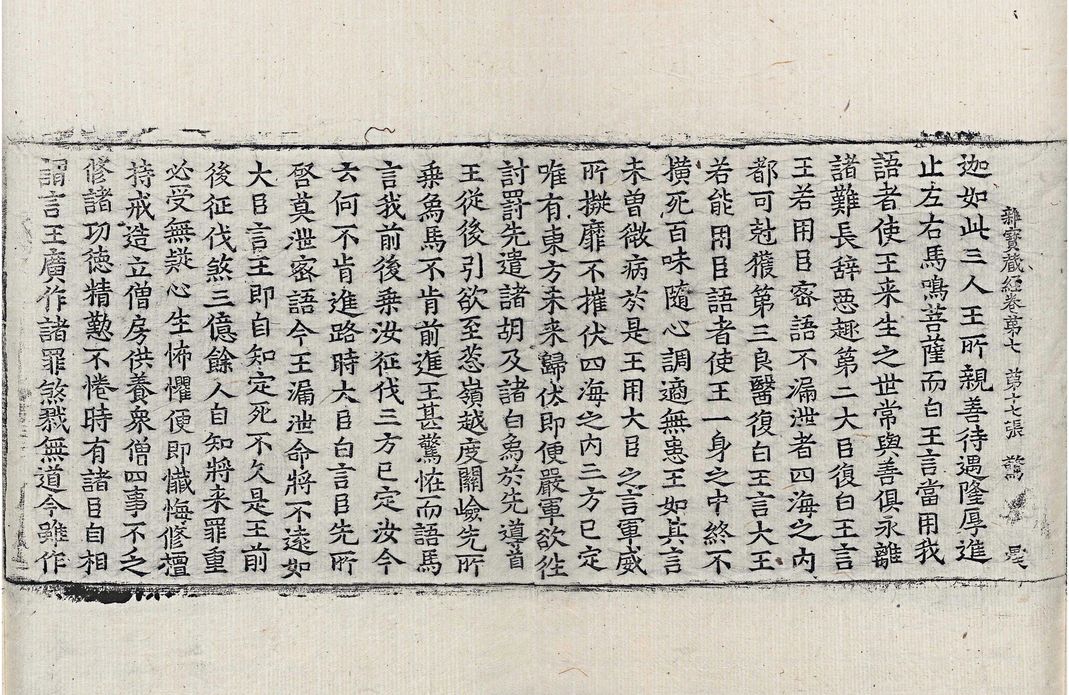 雜寶藏經卷第七 第十七張 驚
迦如此三人王所親善待遇隆厚進
止左右馬鳴菩薩而白王言當用我
語者使王來生之世常與善俱永離
諸難長辞惡趣第二大臣復白王言
王若用臣密語不漏泄者四海之內
都可尅獲第三良醫復白王言大王
若能用臣語者使王一身之中終不
橫死百味隨心調適無患王如其言
未曾微病於是王用大臣之言軍威
所擬靡不摧伏四海之內三方已定
唯有東方未來歸伏即便嚴軍欲往
討罰先遣諸胡及諸白象於先導首
王從後引欲至葱嶺越度關嶮先所
乘象馬不肯前進王甚驚恠而語馬
言我前後乘汝征伐三方已定汝今
云何不肯進路時大臣白言臣先所
啓莫泄密語今王漏泄命將不遠如
大臣言王即自知定死不久是王前
後征伐煞三億餘人自知將來罪重
必受無疑心生怖懼便即懺悔修檀
持戒造立僧房供養衆僧四事不乏
修諸功德精懃不惓時有諸臣自相
謂言王廣作諸罪煞戮無道今雖作